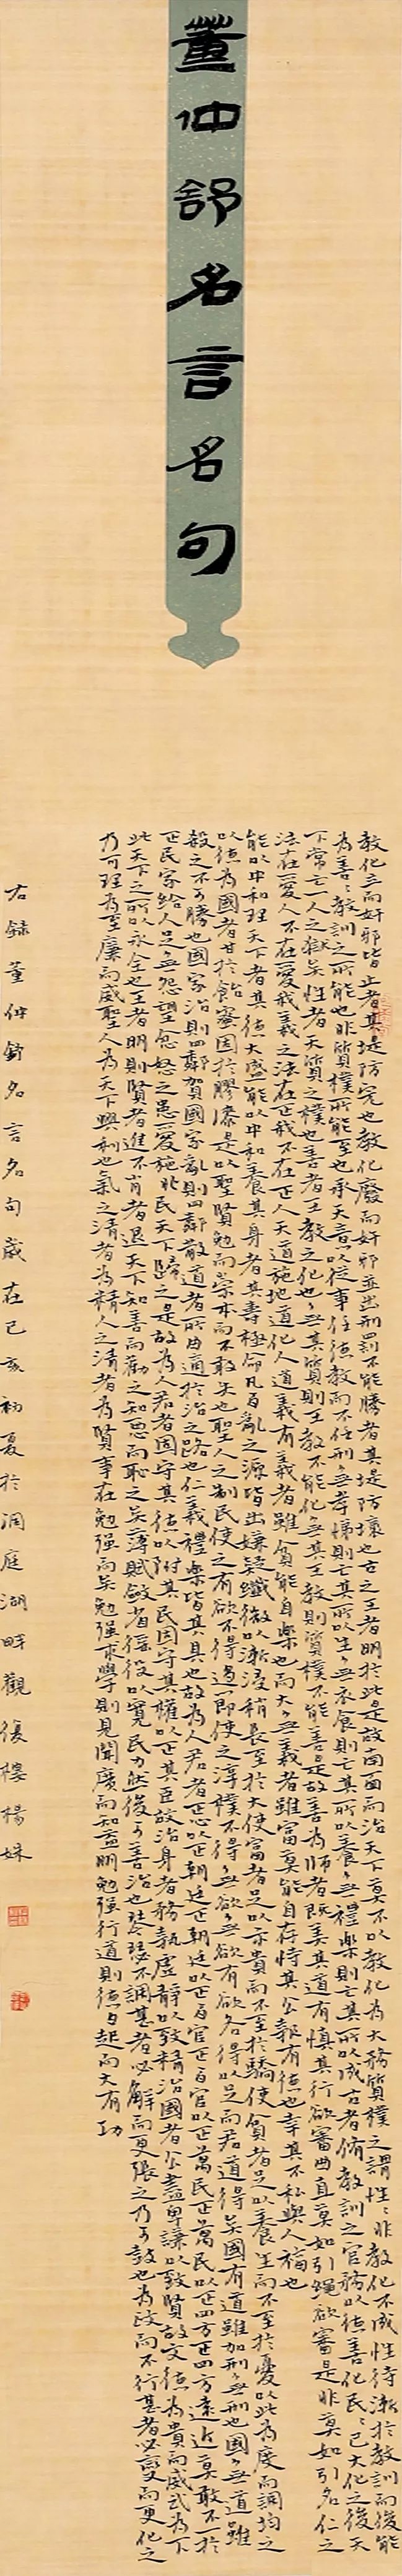 董仲舒名言名句
教化立而奸邪皆止者其堤防完也教化廢而奸邪並出刑罰不能勝者其堤防壞也古之王者明於此是故南面而治天下莫不以教化為大務質樸之謂性性非教化不成性待漸於教訓而後能
為善善教訓之所能也非質樸所能至也承天意以從事任德教而不任刑無孝悌則亡其所以生無衣食則亡其所以養無禮樂則亡其所以成古者脩教訓之官務以德善化民民已大化之後天
下常亡一人之獄矣性者天質之樸也善者王教之化也無其質則王教不能化無其王教則質樸不能善是故善為師者既美其道有慎其行欲審曲直莫如引繩欲審是非莫如引名仁之
法在愛人不在愛我義之法在正我不在正人天道施地道化人道義有義者雖貧能自樂也而大無義者雖富莫能自存恃其公報有德也幸其不私與人福也
能以中和理天下者其德大盛能以中和養其身者其壽極命凡百亂之源皆出嫌疑纖微以漸浸稍長至於大使富者足以示貴而不至於驕使貧者足以養生而不至於憂以此為度而調均之
以德為國者甘於飴蜜固於膠漆是以聖賢勉而崇本而不敢失也聖人之制民使之有欲不得過節使之淳樸不得無欲無欲有欲各得以足而君道得矣國有道雖加刑無刑也國無道雖
殺之不可勝也國家治則四鄰賀國家亂則四鄰散道者所由適於治之路也仁義禮樂皆其具也故為人君者正心以正朝廷正朝廷以正百官正百官以正萬民正萬民以正四方正四方遠近莫敢不一於
正民家給人足無怨望忿怒之患愛施兆民天下歸之是故為人君者固守其德以附其民固守其權以正其臣故治身者務執虛靜以致精治國者公盡卑謙以致賢故文德為貴而威武為下
此天下之所以永全也王者明則賢者進不肖者退天下知善而勸之知惡而恥之矣薄賦斂省徭役以寬民力然後可善治也琴瑟不調甚者必解而更張之乃可鼓也為政而不行甚者必變而更化之
乃可理為至廉而威聖人為天下興利也氣之清者為精人之清者為賢事在勉強而矣勉強求學則見聞廣而知益明勉強行道則德日起而大有功
右錄董仲舒名言名句歲在己亥初夏於洞庭湖畔觀復樓楊姝